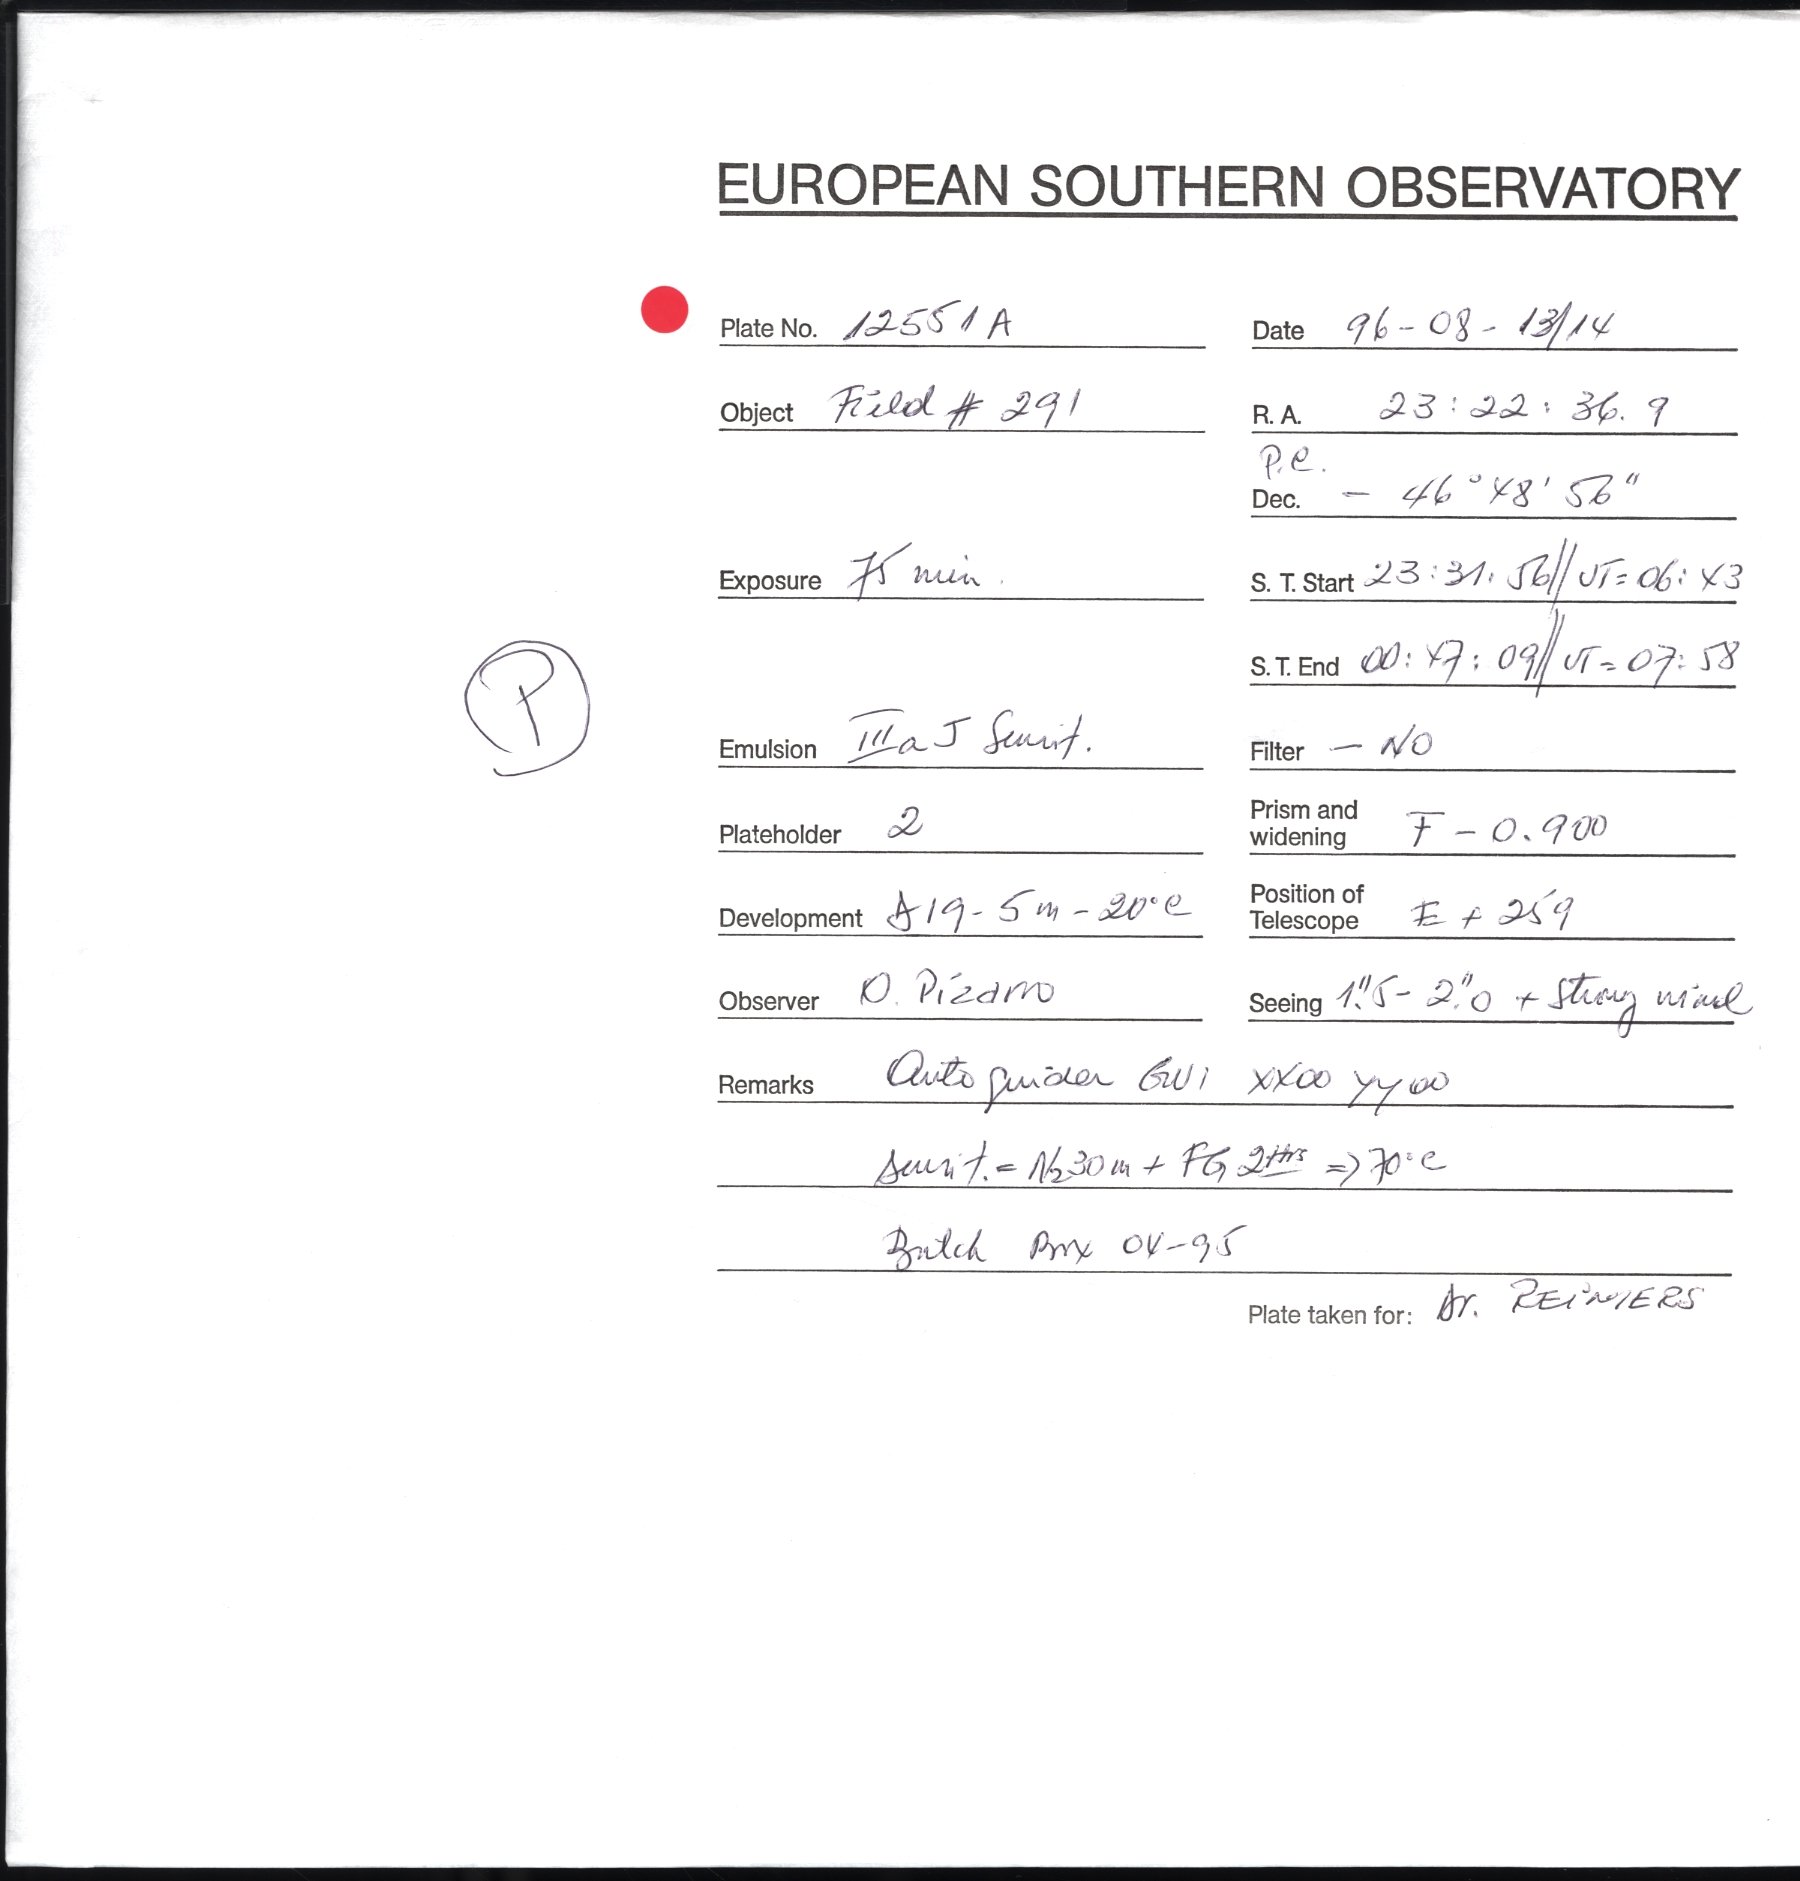 EUROPEAN SOUTHERN OBSERVATORY
Plate No. 12551A
Date 96-08-13/14
Object Field # 291
R. A. 23:22:36.9
P.C.
Dec. - 46° 48' 56"
Exposure 75 min.
S. T. Start 23:31:56 // UT= 06:43
S. T. End 00:47:09 // UT= 07:58
P
Emulsion IIIaJ Sensit.
Filter - NO
Plateholder 2
Prism and
widening F - 0.900
Development D19 - 5m - 20°C
Position of
Telescope E + 259
Observer O. Pizarro
Seeing 1."5 - 2."0 + Strong wind
Remarks Autoguider GW1 XX00 YY00
Sensit. = N2 30m + FG 2Hrs => 70°C
Batch Box 04-95
Plate taken for: Dr. REIMERS